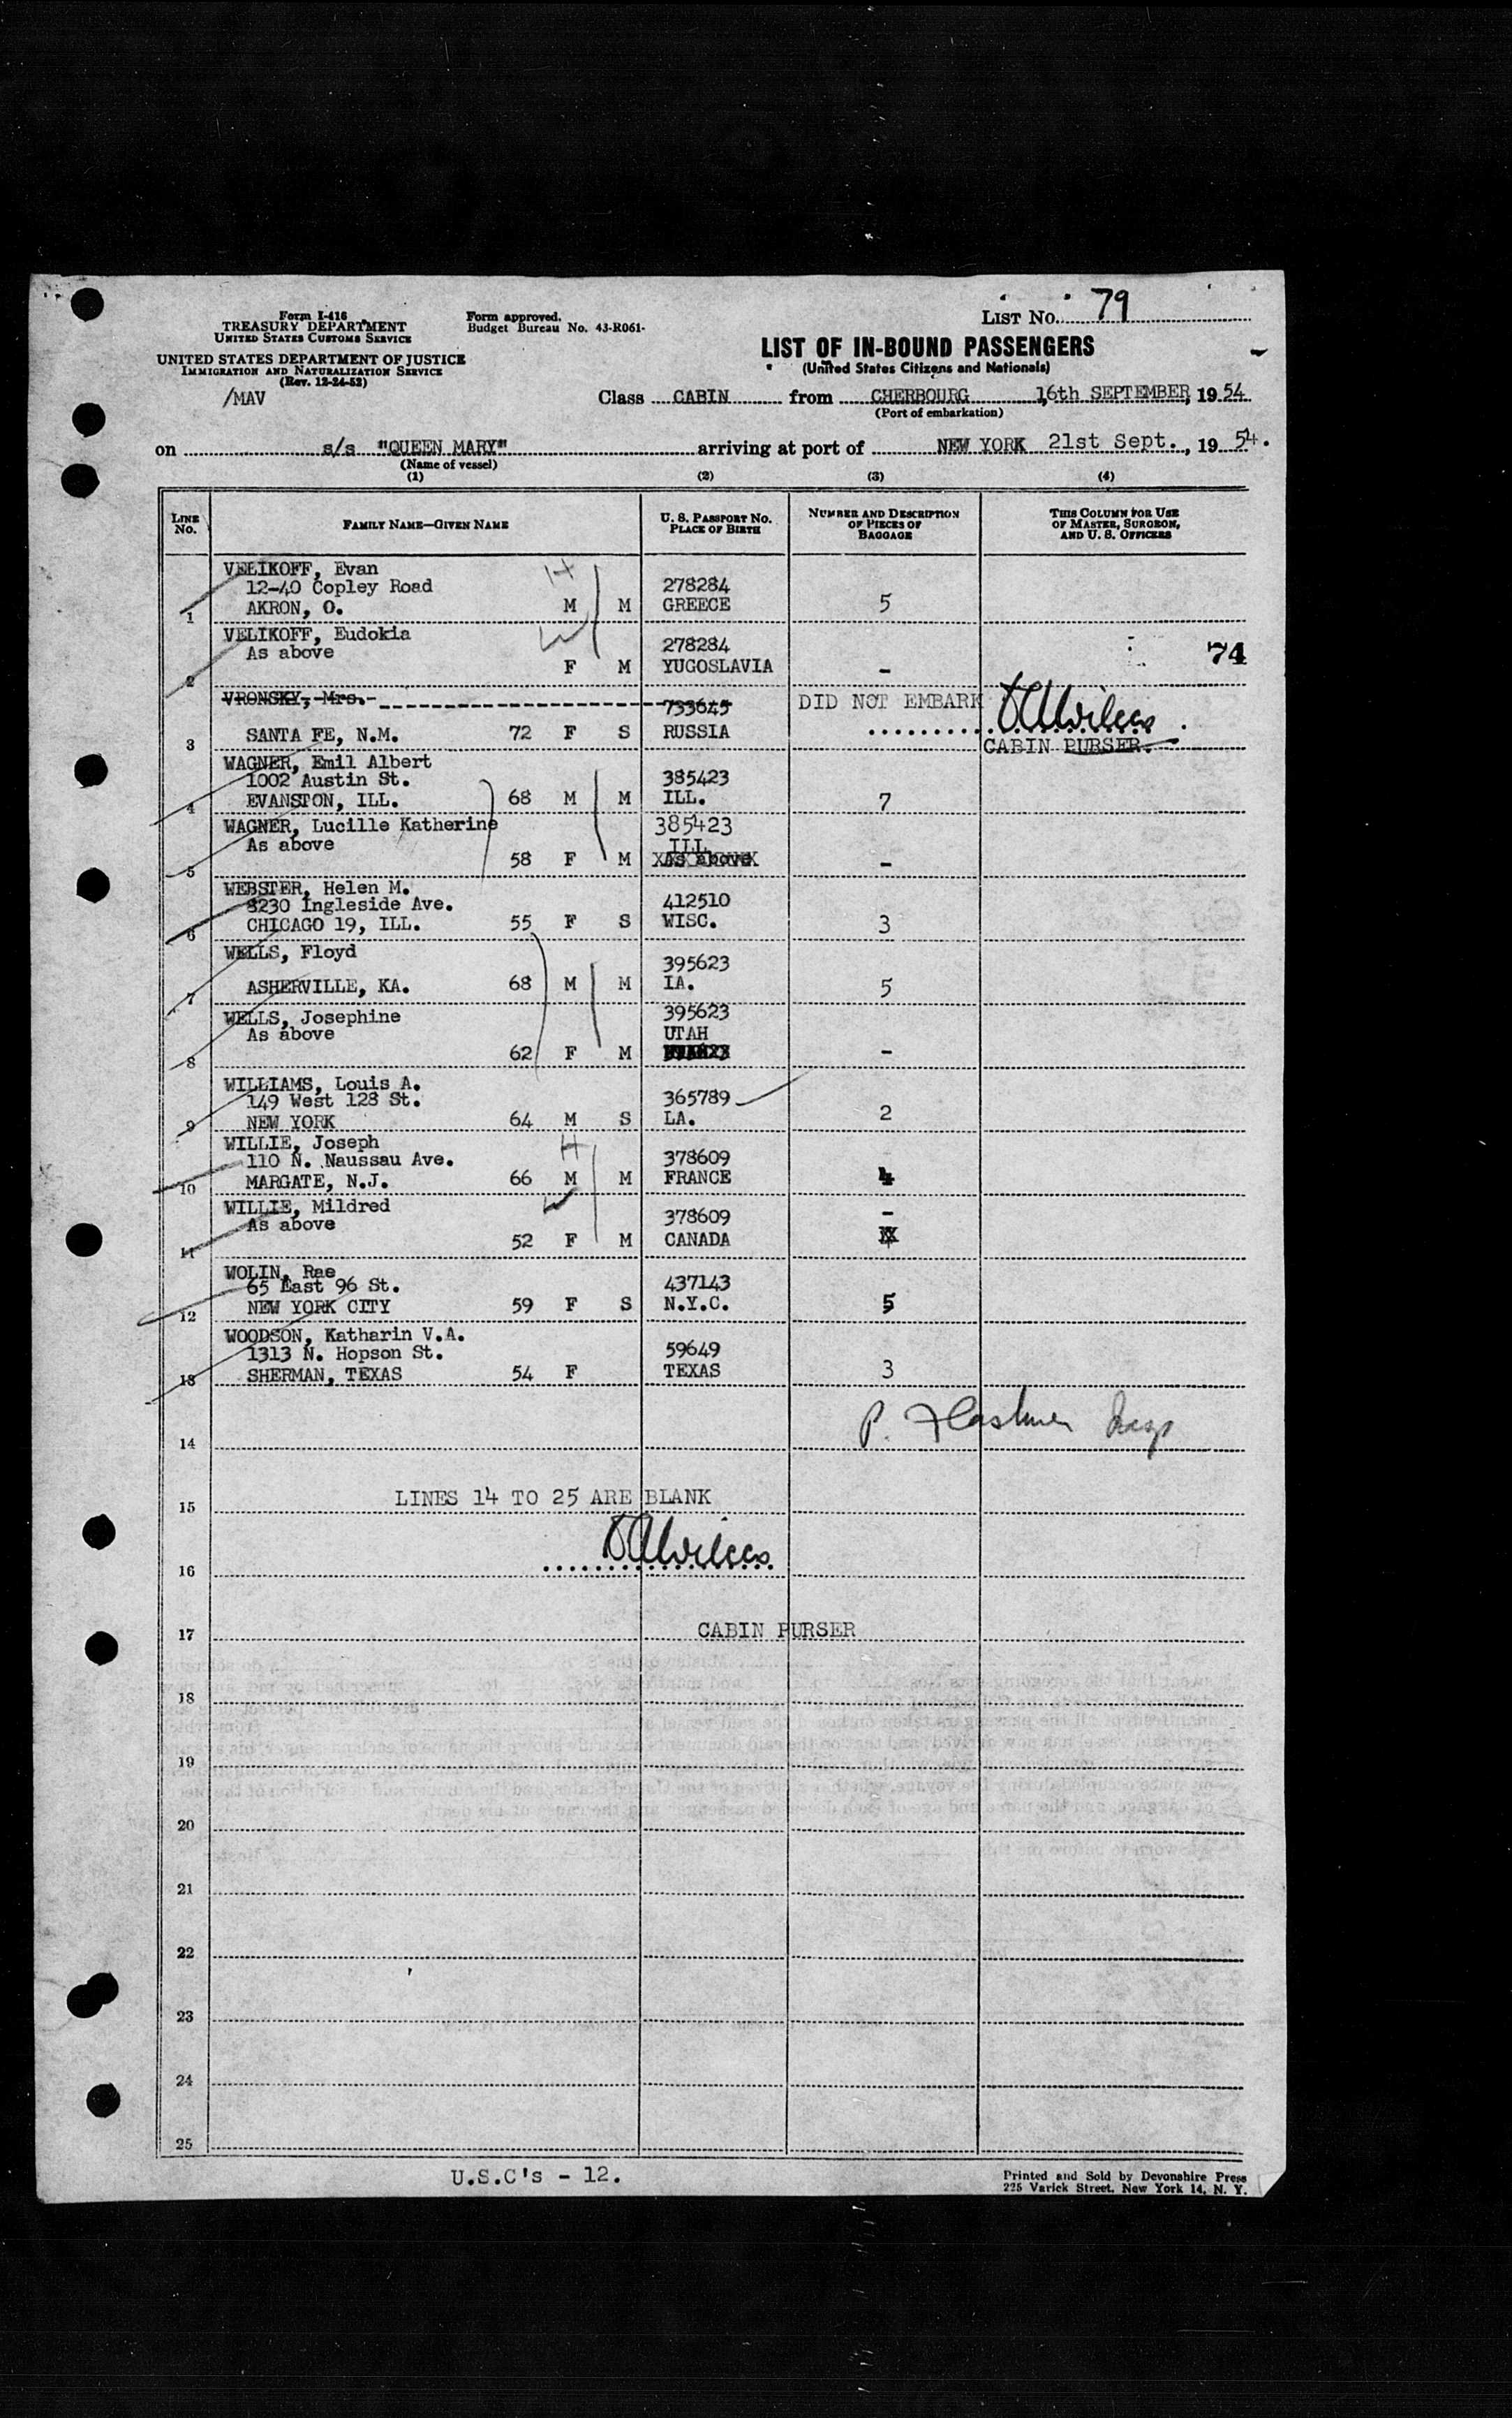 Form I-416
TREASURY DEPARTMENT
UNITED STATES CUSTOMS SERVICE
UNITED STATES DEPARTMENT OF JUSTICE
IMMIGRATION AND NATURALIZATION SERVICE
(Rev. 12-24-52)
/MAV
Form approved.
Budget Bureau No. 43-R061-
LIST No. 79
LIST OF IN-BOUND PASSENGERS
(United States Citizens and Nationals)
Class CABIN from CHERBOURG 16th SEPTEMBER, 1954
(Port of embarkation)
on s/s "QUEEN MARY" arriving at port of NEW YORK 21st Sept., 1954.
(Name of vessel)
(1) (2) (3) (4)
LINE No.
FAMILY NAME—GIVEN NAME
U. S. PASSPORT NO.
PLACE OF BIRTH
NUMBER AND DESCRIPTION
OF PIECES OF
BAGGAGE
THIS COLUMN FOR USE
OF MASTER, SURGEON,
AND U. S. OFFICERS
VELIKOFF, Evan H
12-40 Copley Road 278284
1 AKRON, O. M M GREECE 5
VELIKOFF, Eudokia W 278284
As above 74
2 F M YUGOSLAVIA -
VRONSKY, Mrs. 733645 DID NOT EMBARK
3 SANTA FE, N.M. 72 F S RUSSIA
CABIN PURSER
WAGNER, Emil Albert
1002 Austin St. 385423
4 EVANSTON, ILL. 68 M M ILL. 7
WAGNER, Lucille Katherine 385423
As above ILL
5 58 F M As above -
WEBSTER, Helen M.
8230 Ingleside Ave. 412510
6 CHICAGO 19, ILL. 55 F S WISC. 3
WELLS, Floyd 395623
7 ASHERVILLE, KA. 68 M M IA. 5
WELLS, Josephine 395623
As above UTAH
8 62 F M -
WILLIAMS, Louis A.
149 West 128 St. 365789
9 NEW YORK 64 M S LA. 2
WILLIE, Joseph H
110 N. Naussau Ave. 378609
10 MARGATE, N.J. 66 M M FRANCE 4
WILLIE, Mildred W 378609 -
As above
11 52 F M CANADA
WOLIN, Rae
65 East 96 St. 437143
12 NEW YORK CITY 59 F S N.Y.C. 5
WOODSON, Katharin V.A.
1313 N. Hopson St. 59649
13 SHERMAN, TEXAS 54 F TEXAS 3
14
15 LINES 14 TO 25 ARE BLANK
16
17 CABIN PURSER
18
19
20
21
22
23
24
25
U.S.C's - 12.
Printed and Sold by Devonshire Press
225 Varick Street, New York 14, N. Y.